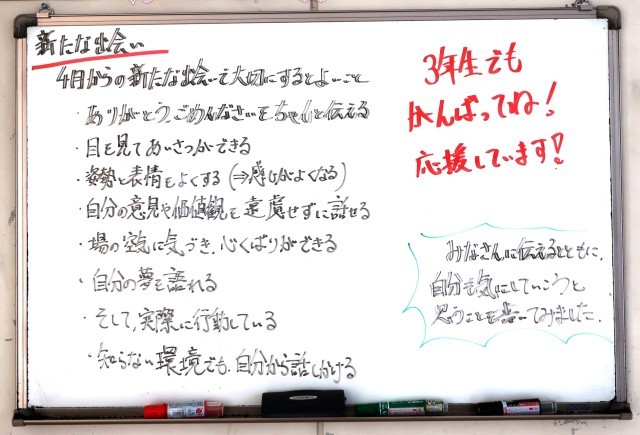 新たな出会い
4月からの新たな出会いで大切にするとよいこと
・ありがとう、ごめんなさいをちゃんと伝える
・目を見てあいさつができる
・姿勢と表情をよくする(⇒感じがよくなる)
・自分の意見や価値観を遠慮せずに話せる
・場の空気に気づき、心くばりができる
・自分の夢を語れる
・そして、実際に行動している
・知らない環境でも、自分から話しかける
3年生でも
がんばってね!
応援しています!
みなさんに伝えるとともに、
自分も気にしていこうと
思うことを書いてみました。